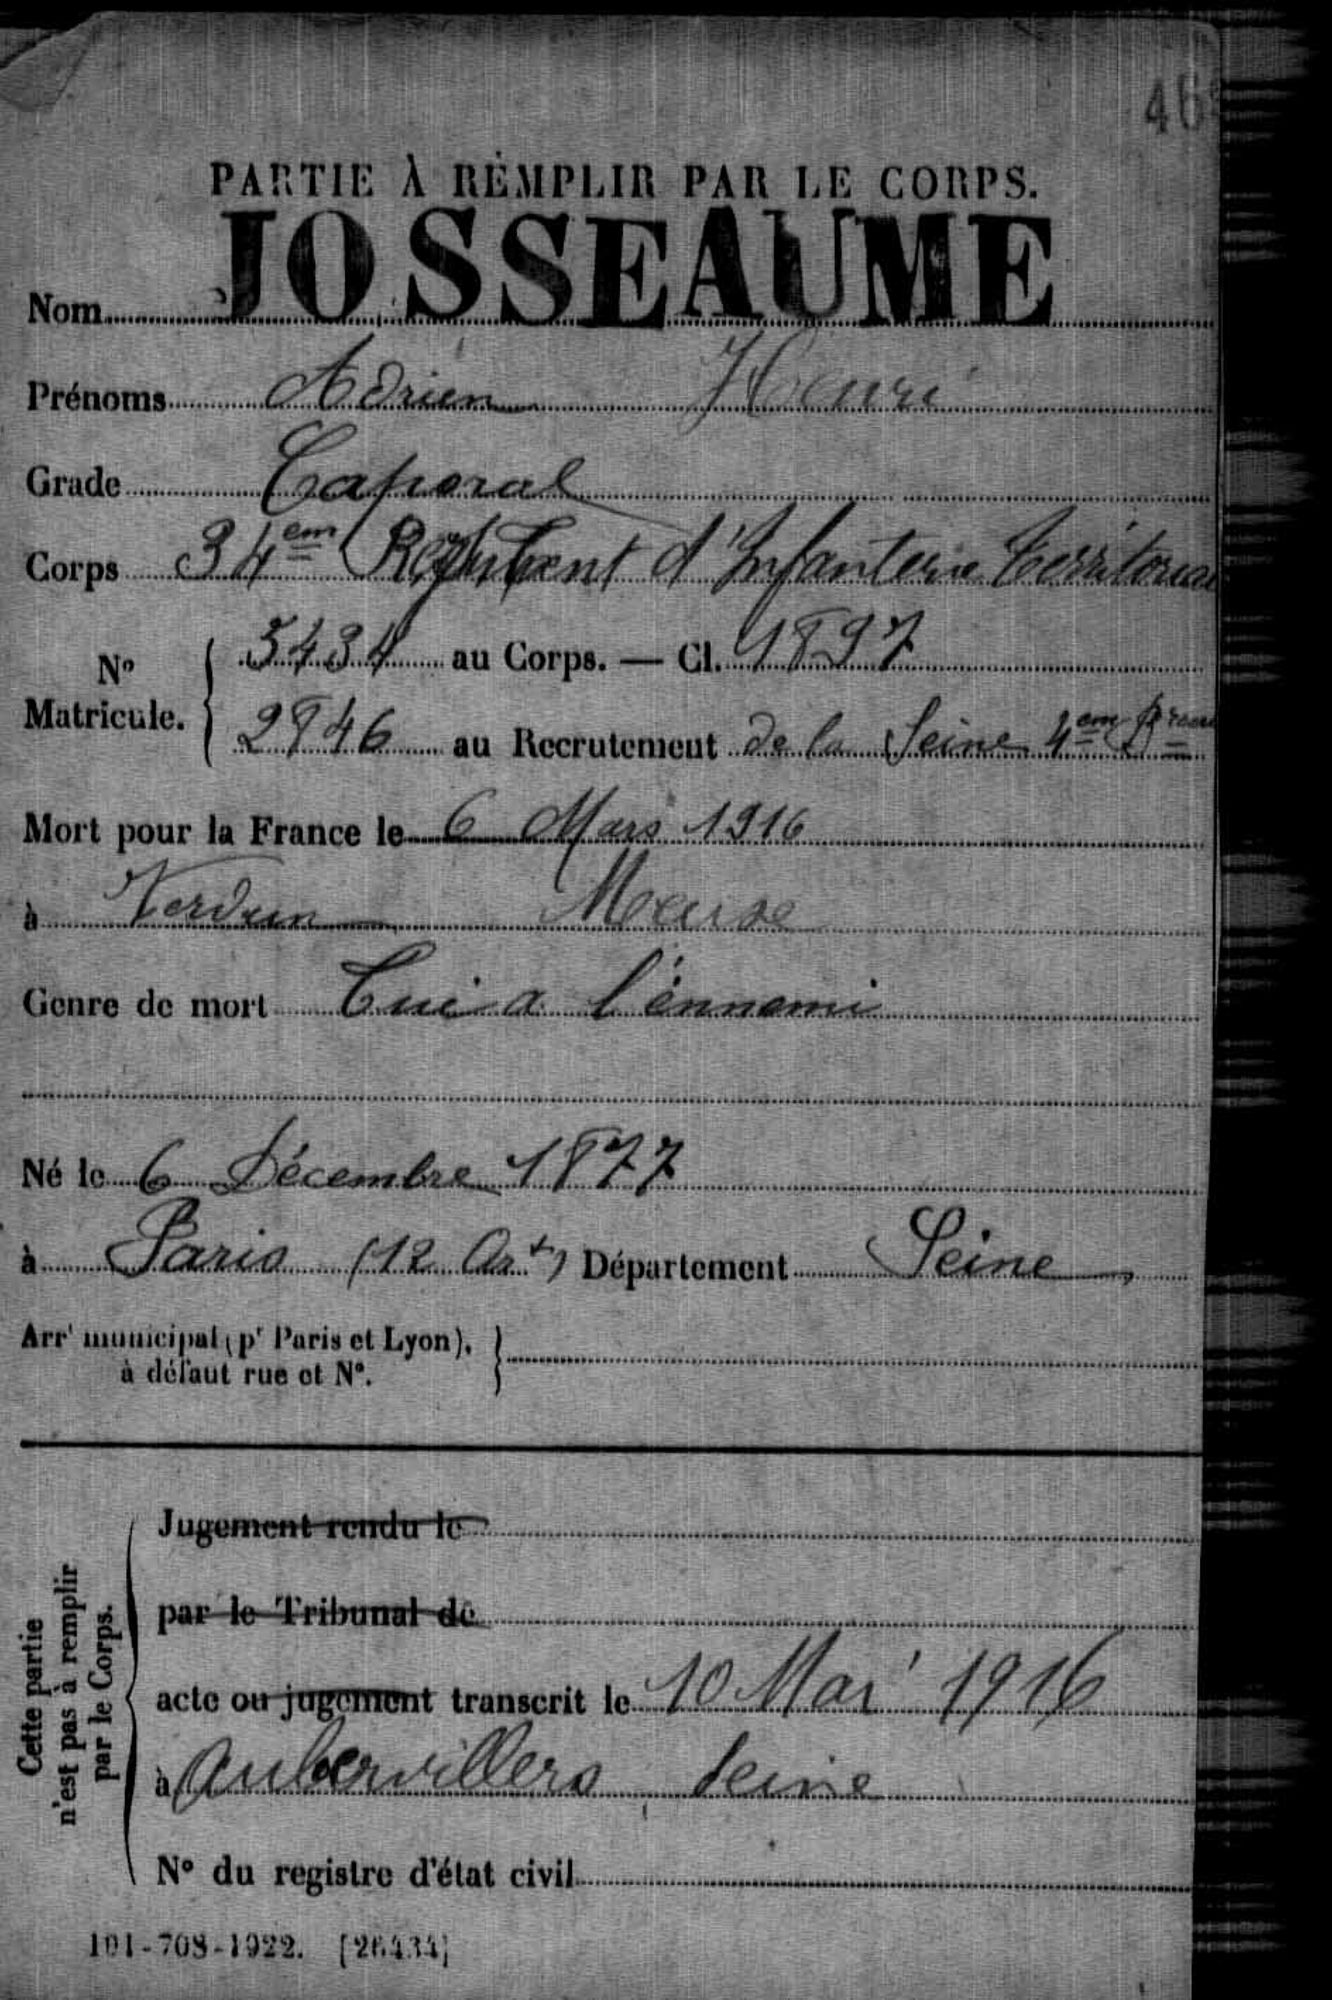 46
PARTIE À REMPLIR PAR LE CORPS.
Nom JOSSEAUME
Prénoms Adrien Henri
Grade Caporal
Corps 34em Régiment d'Infanterie Territorial
N° Matricule. { 5434 au Corps. — Cl. 1897
2846 au Recrutement de la Seine 4em
Mort pour la France le 6 Mars 1916
à Verdun Meuse
Genre de mort Tué a l'énnemi
Né le 6 Décembre 1877
à Paris (12 Art) Département Seine
Arrt municipal (pr Paris et Lyon),
à défaut rue et N°.
Cette partie n'est pas à remplir par le Corps.
Jugement rendu le
par le Tribunal de
acte ou jugement transcrit le 10 Mai 1916
à Aubervilliers Seine
N° du registre d'état civil
101-708-1922. [26434]